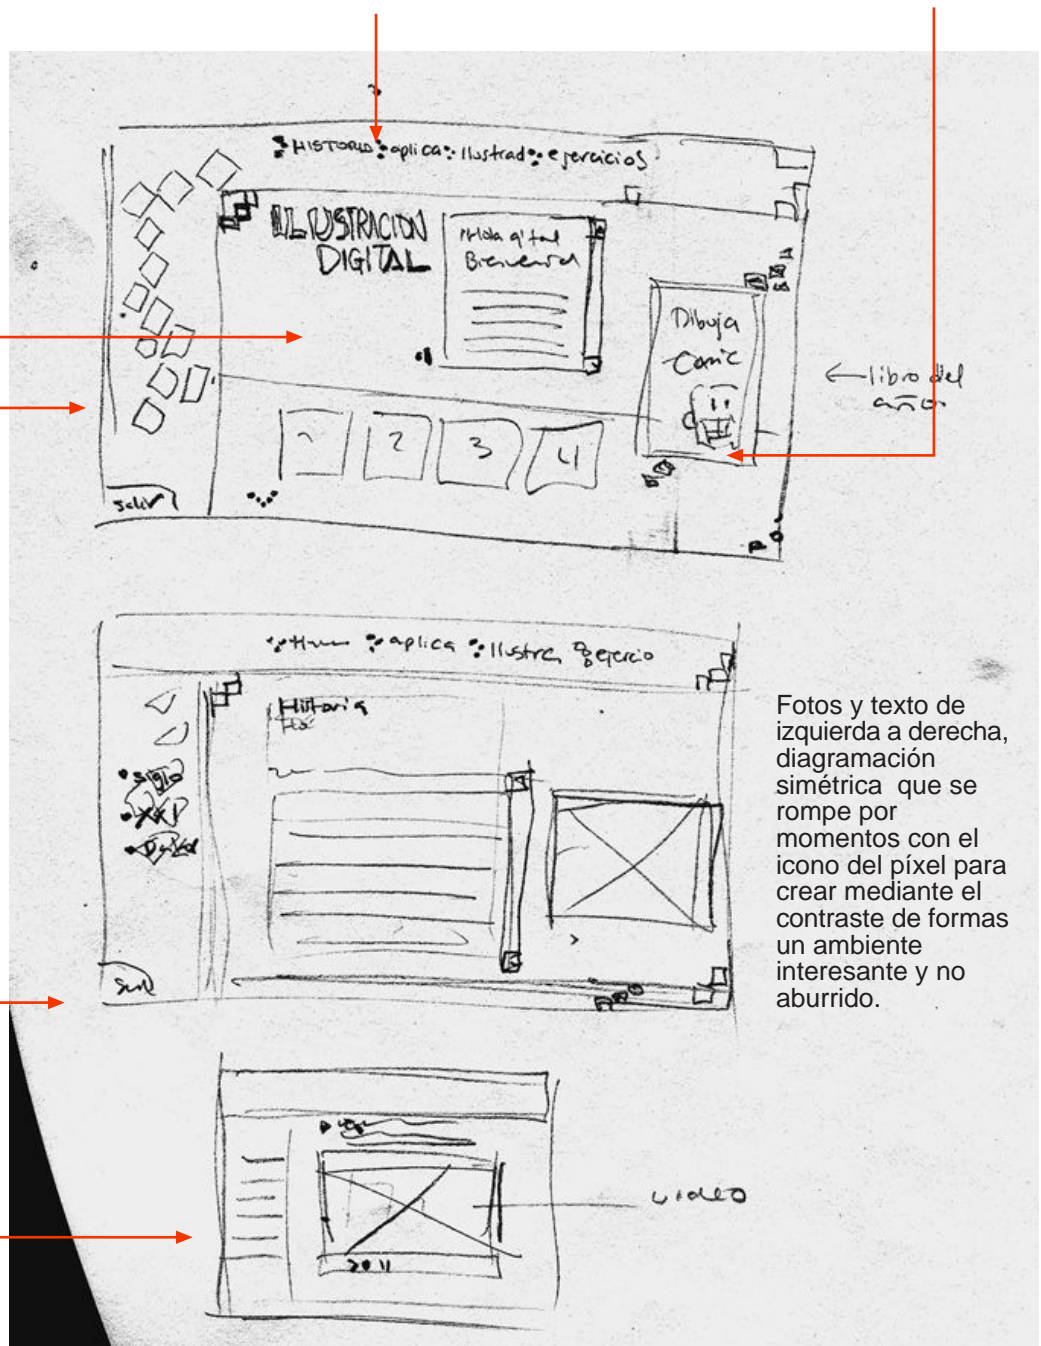 HISTORIA aplica Ilustrad ejercicios
ILUSTRACION
DIGITAL
Hola q' tal
Bienvenid
Dibuja
Comic
libro del
año
1 2 3 4
Salir
aplica Ilustra ejercio
Historia
Siglo
XXI
Digital
Fotos y texto de
izquierda a derecha,
diagramación
simétrica que se
rompe por
momentos con el
icono del píxel para
crear mediante el
contraste de formas
un ambiente
interesante y no
aburrido.
video